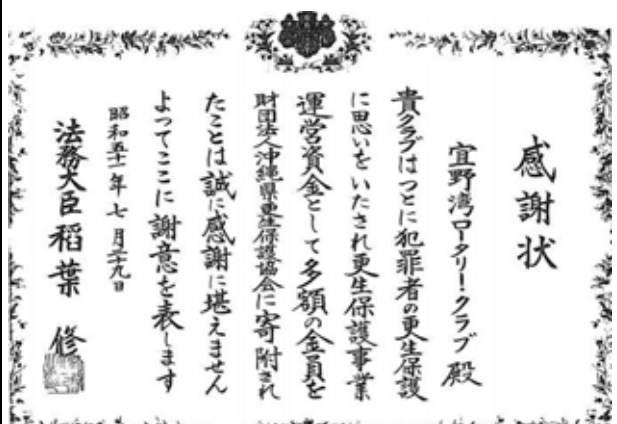 感謝状
宜野湾ロータリークラブ殿
貴クラブはつとに犯罪者の更生保護
に思いをいたされ更生保護事業
運営資金として多額の金員を
財団法人沖縄県更生保護協会に寄附され
たことは誠に感謝に堪えません
よってここに謝意を表します
昭和五十一年七月二十九日
法務大臣稲葉修